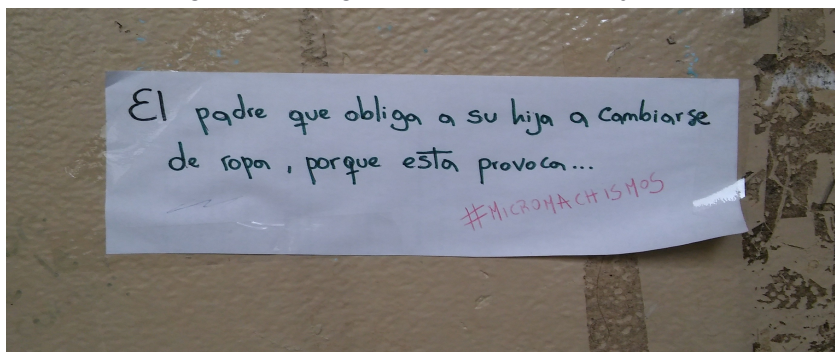 El padre que obliga a su hija a cambiarse
de ropa, porque esta provoca...
#MICROMACHISMOS